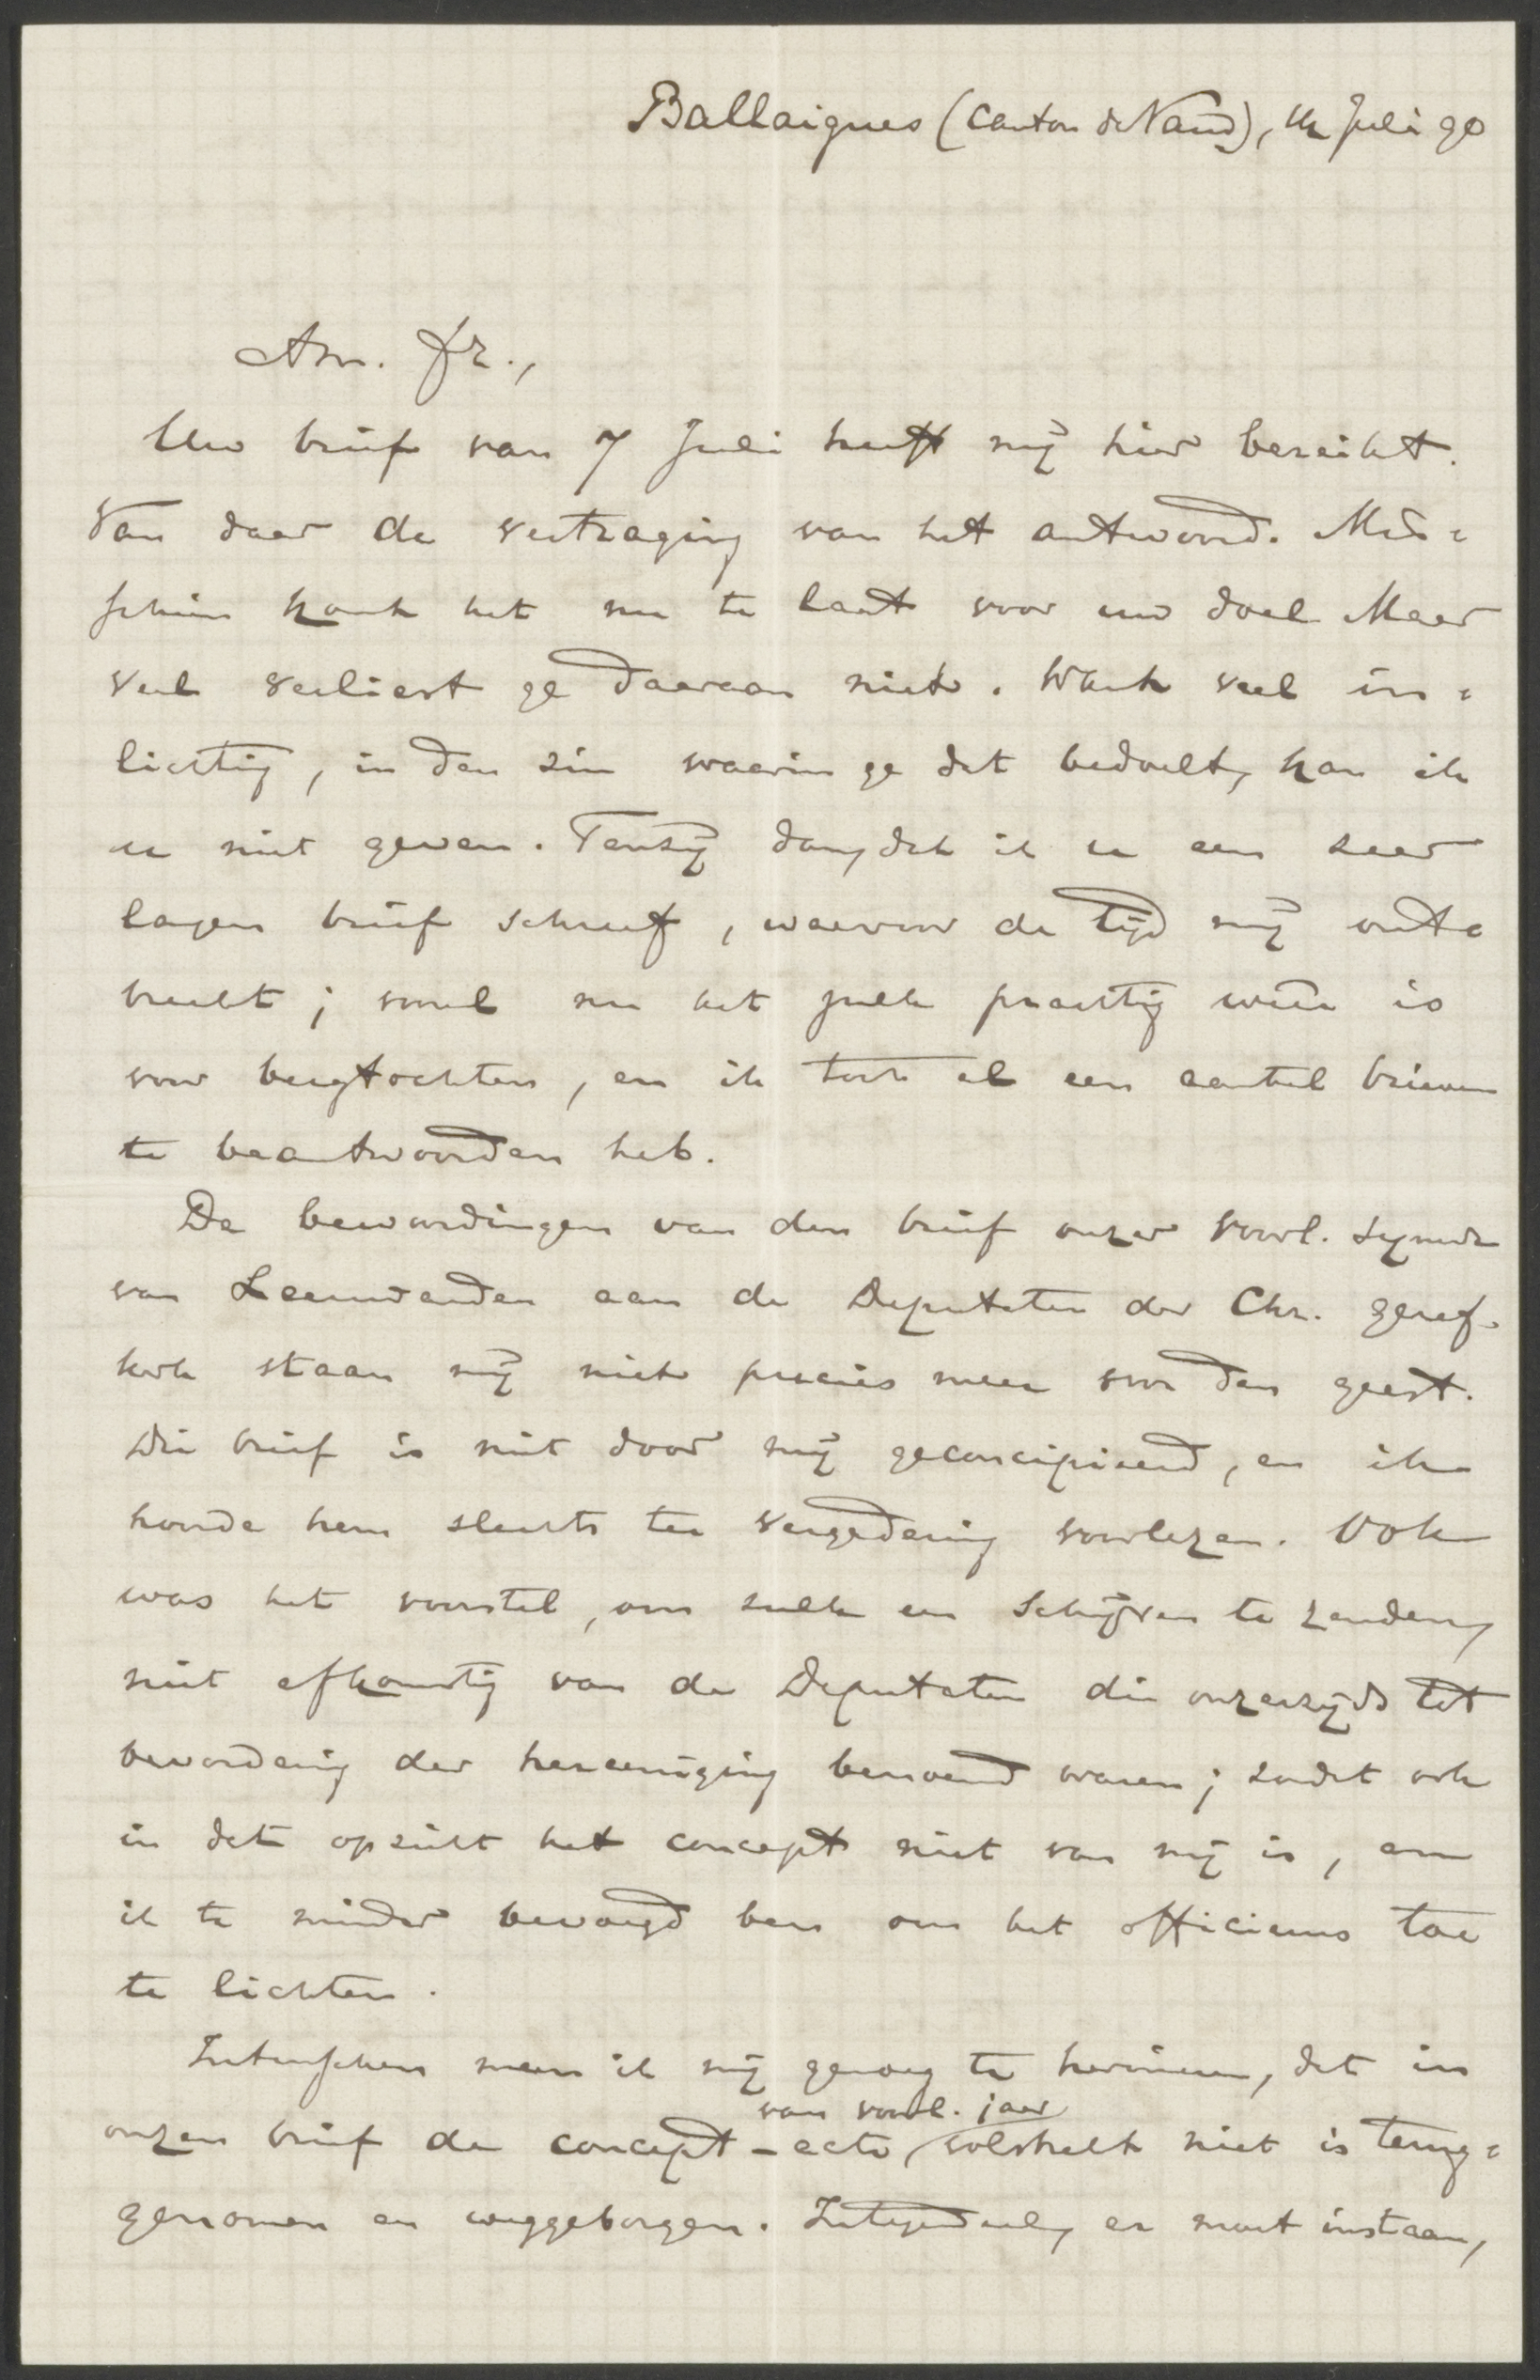 Ballaigues (Canton de Vaud), Juli 90
Am. fr.,
Uw brief van 7 Juli heeft mij hier bereikt.
Van daar de vertraging van het antwoord. Mis=
schien komt het nu te laat voor uw doel. Maar
veel verliest ge daaraan niet. Want veel in=
lichting, in den zin waarin ge dat bedoelt, kan ik
u niet geven. Tenzij dan, dat ik u een zeer
langen brief schreef, waarvoor de tijd mij ont=
breekt; vooral nu het zulk prachtig weer is
voor bergtochten, en ik toch al een aantal brieven
te beantwoorden heb.
De bewoordingen van den brief onzer voorl. synode
van Leeuwarden aan de Deputaten der Chr. geref.
kerk staan mij niet precies meer voor den geest.
Die brief is niet door mij geconcipieerd, en ik
hoorde hem slechts ter vergadering voorlezen. Ook
was het voorstel, om zulk een schrijven te zenden,
niet afkomstig van de Deputaten die onzerzijds tot
bevordering der hereeniging benoemd waren; zoodat ook
in dat opzicht het concept niet van mij is, en
ik te minder bevoegd ben om het officieus toe
te lichten.
Intusschen meen ik mij genoeg te herinneren, dat in
van voorl. jaar
onzen brief de concept-acte volstrekt niet is terug=
genomen en weggeborgen. Integendeel, er moet instaan,